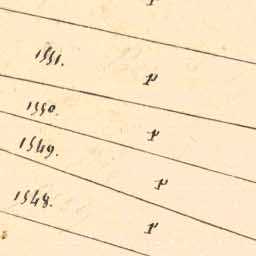 P
1551. P
1550. P
1549. P
1548. P